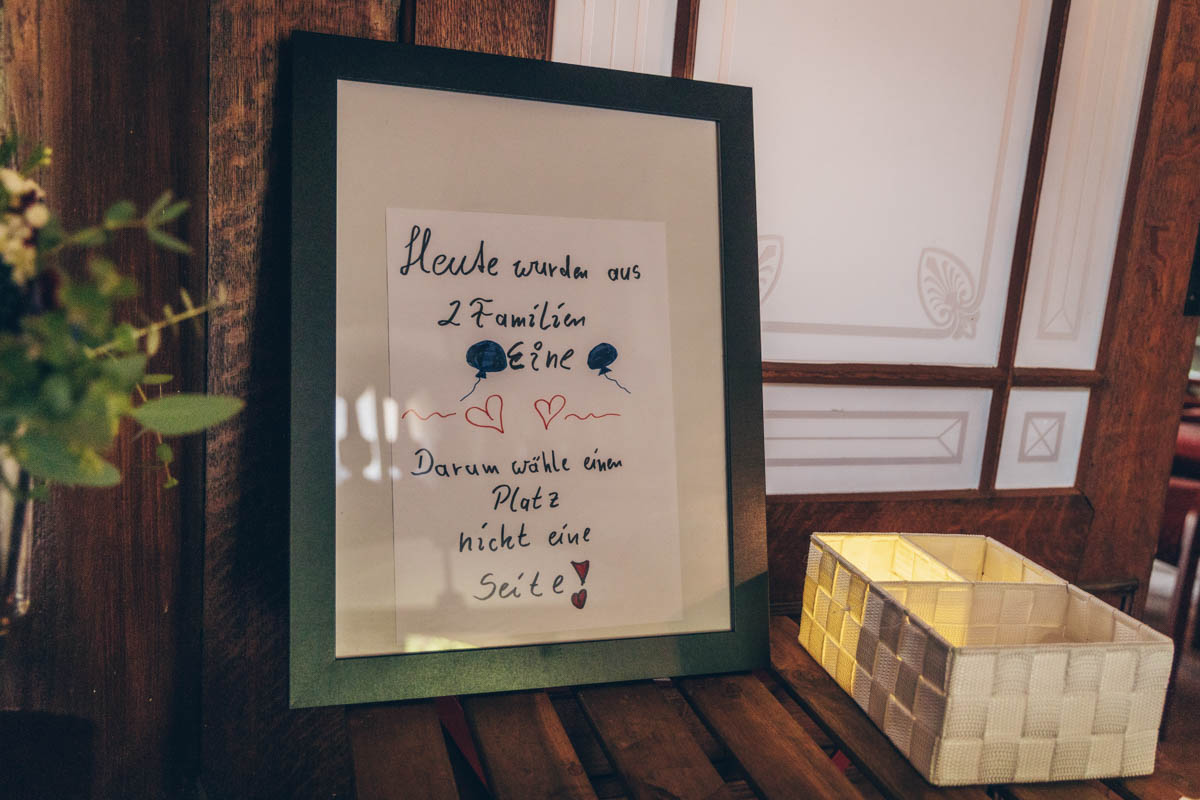 Heute wurden aus
2 Familien
Eine
Darum wähle einen
Platz
nicht eine
Seite!